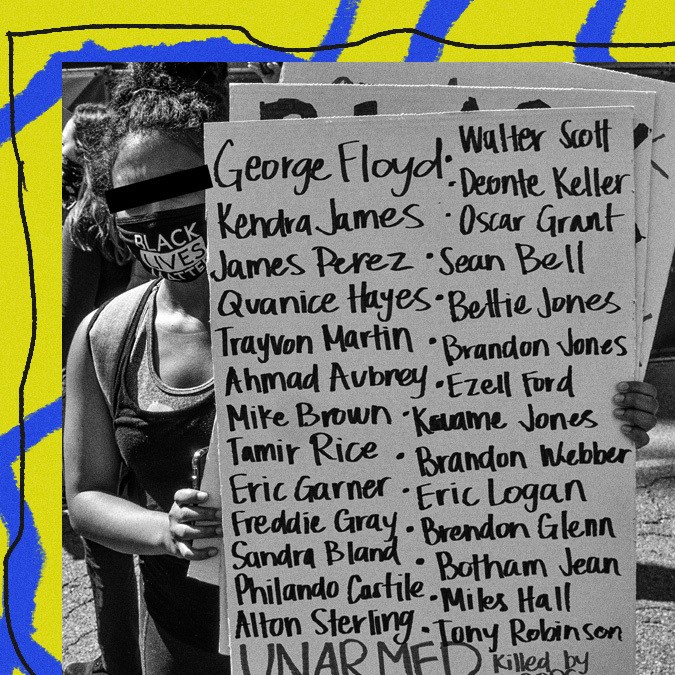 BLACK
LIVES
MATTER
George Floyd · Walter Scott
· Deonte Keller
Kendra James · Oscar Grant
James Perez · Sean Bell
Quanice Hayes · Bettie Jones
Trayvon Martin · Brandon Jones
Ahmad Aubrey · Ezell Ford
Mike Brown · Kwame Jones
Tamir Rice · Brandon Webber
Eric Garner · Eric Logan
Freddie Gray · Brendon Glenn
Sandra Bland · Botham Jean
Philando Castile · Miles Hall
Alton Sterling · Tony Robinson
UNARMED Killed by